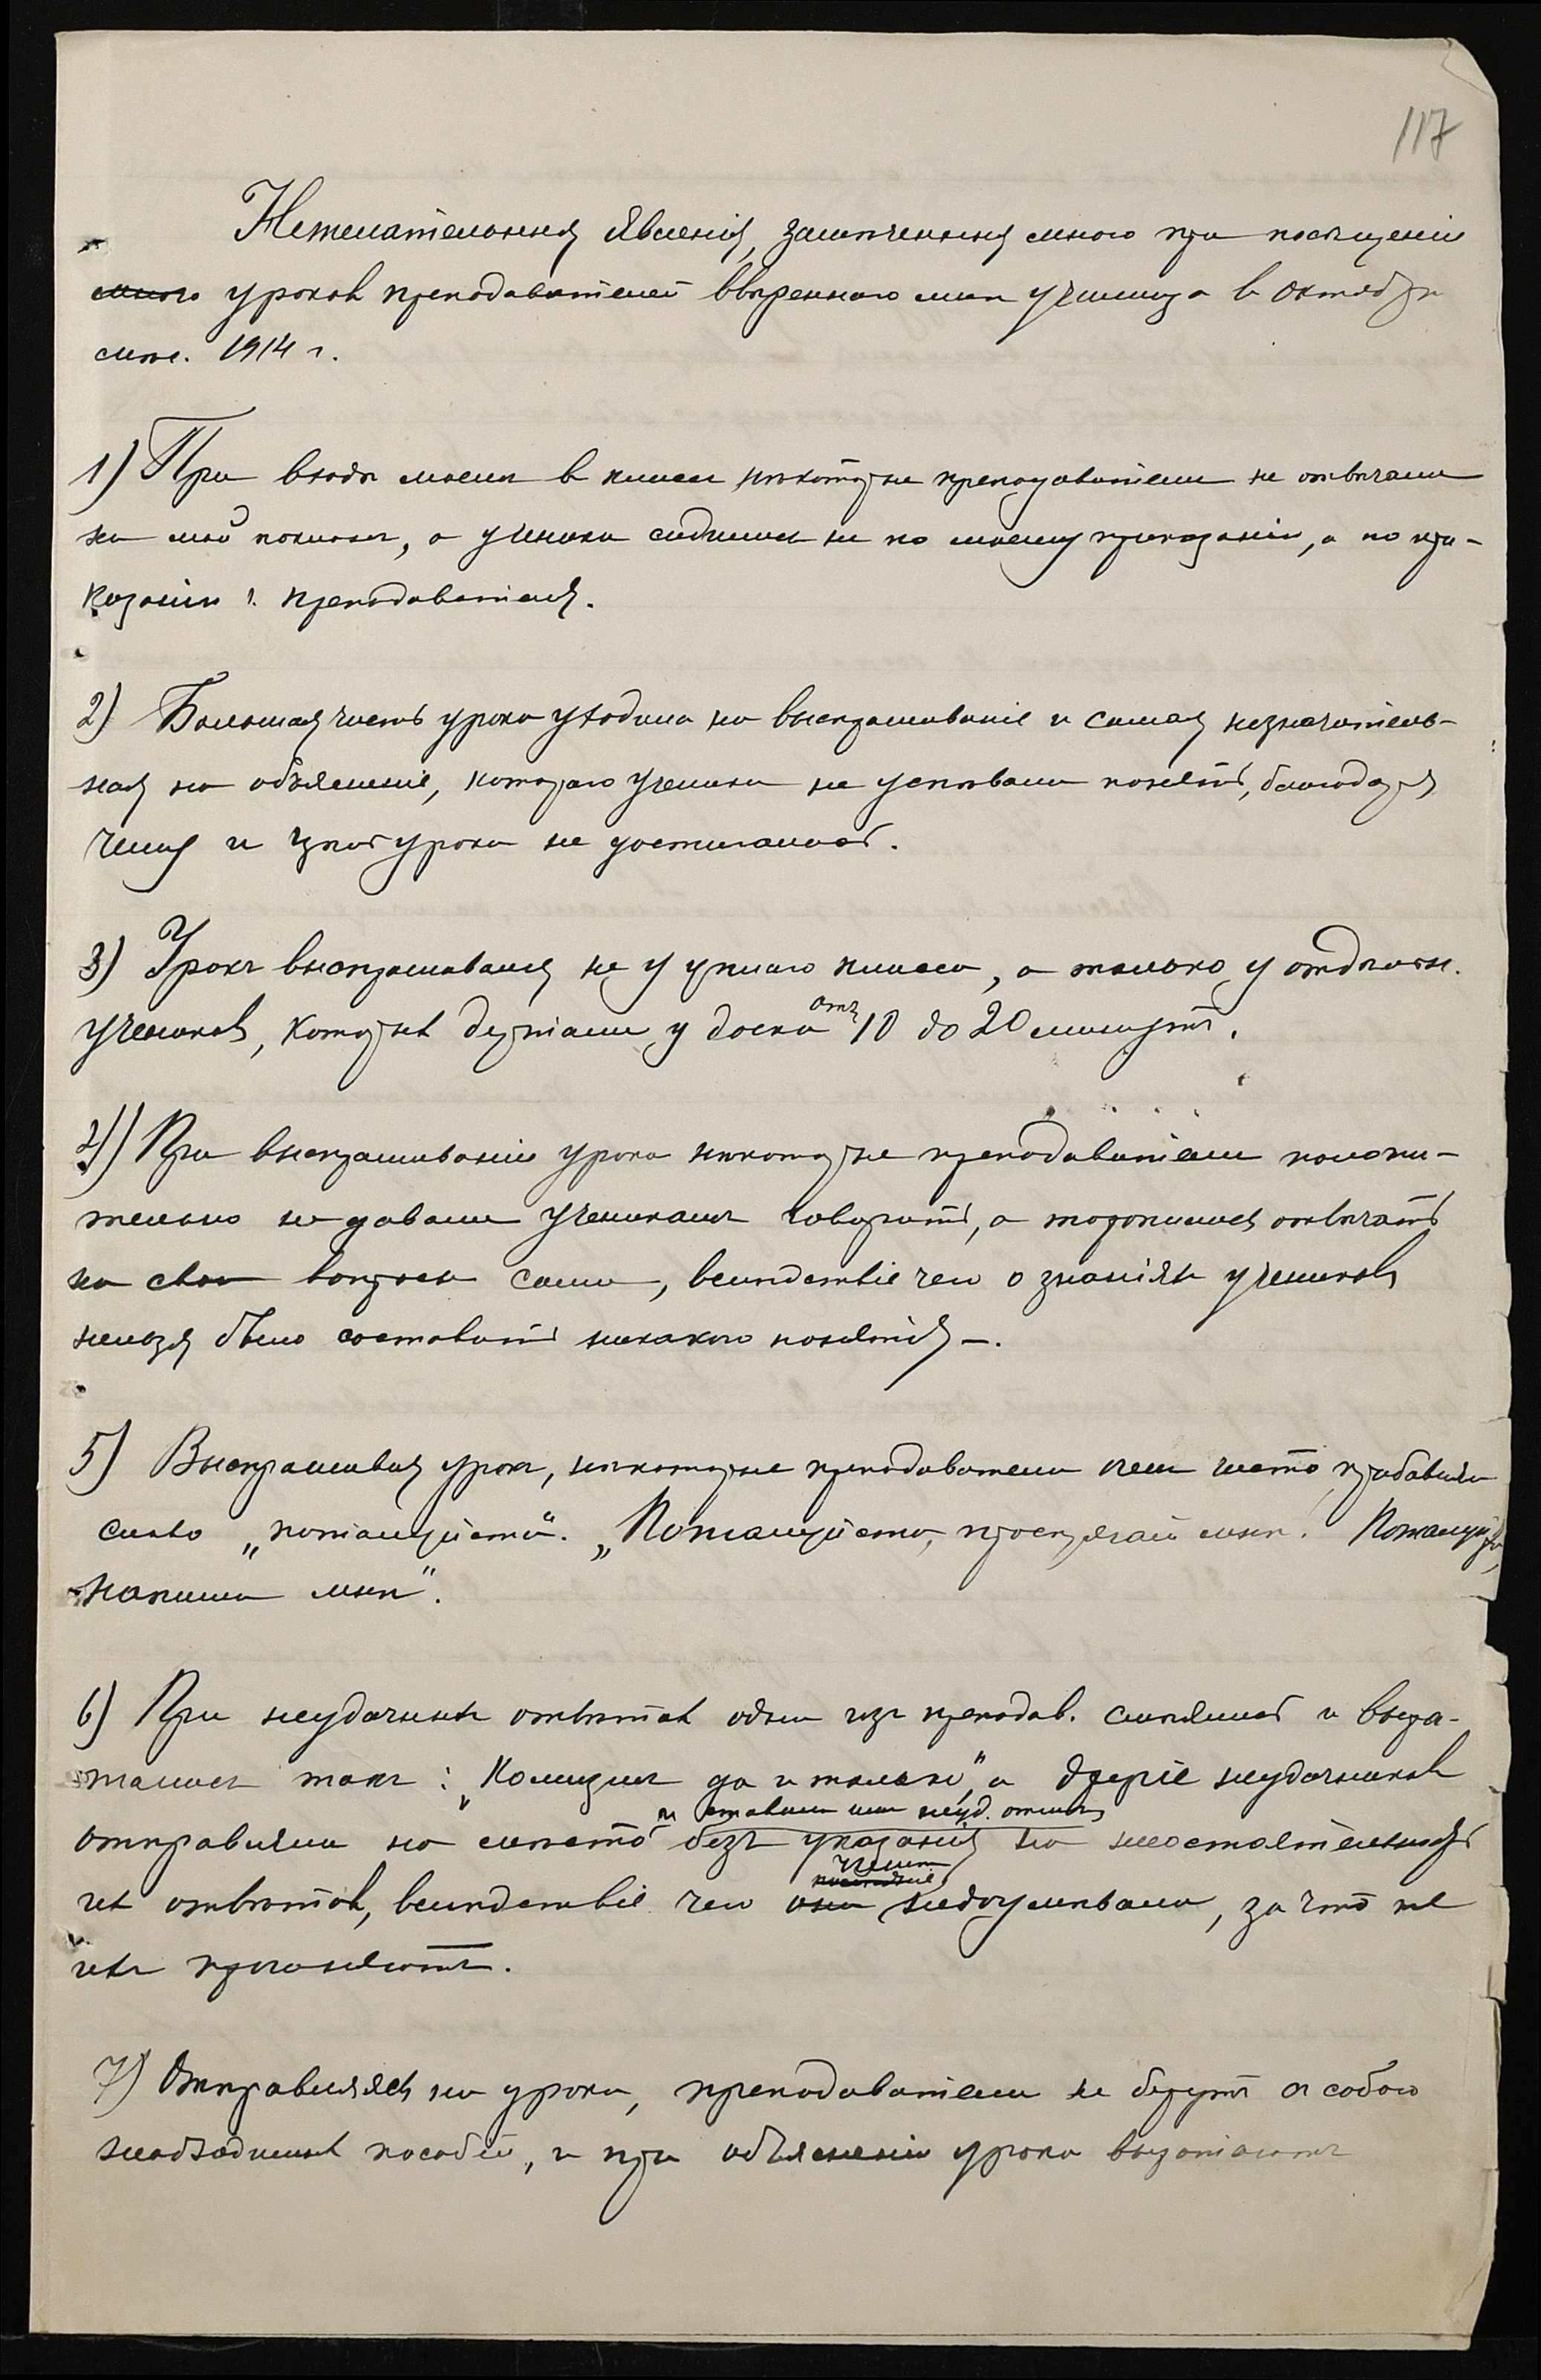 117
Нежелательныя явленія, замѣченныя мною при посѣщеніи
мною уроковъ преподавателей ввѣреннаго мнѣ училища в октябрѣ
мѣс. 1914 г.
1) При входѣ моемъ в классъ нѣкоторые преподаватели не отвѣчали
на мой поклонъ, а ученики садились не по моему приказанію, а по при-
казанію г. преподавателя.
2) Большая часть урока уходила на выспрашиваніе и самая незначитель-
ная на объясненіе, котораго ученики не успѣвали понять, благодаря
чему и цѣль урока не достигалась.
3) Урокъ выспрашивался не у цѣлаго класса, а только у отдѣльн.
учениковъ, которыхъ держали у доски отъ 10 до 20 минутъ.
4) При выспрашиваніи урока нѣкоторые преподаватели положи-
тельно не давали ученикамъ говорить, а торопились отвѣчать
на свои вопросы сами, вслѣдствіе чего о знаніяхъ учениковъ
нельзя было составить никакого понятія.
5) Выспрашивая урокъ, нѣкоторые преподаватели очень часто прибавляли
слово „пожалуйста“. „Пожалуйста, проспрягай мнѣ. Пожалуйста,
напиши мнѣ“.
6) При неудачныхъ отвѣтахъ одинъ изъ преподав. смѣялись и выра-
жались такъ: „Комизмъ да и только“, а другіе неудачниковъ
и ставили имъ неуд. отмѣтку
отправляли на мѣсто безъ указанія на несостоятельность
ученики
последніе
ихъ отвѣтовъ, вслѣдствіе чего они недоумѣвали, за что же
ихъ прогоняютъ.
7) Отправляясь на уроки, преподаватели не берутъ съ собою
необходимыхъ пособій, и при объясненіи урока выражаютъ